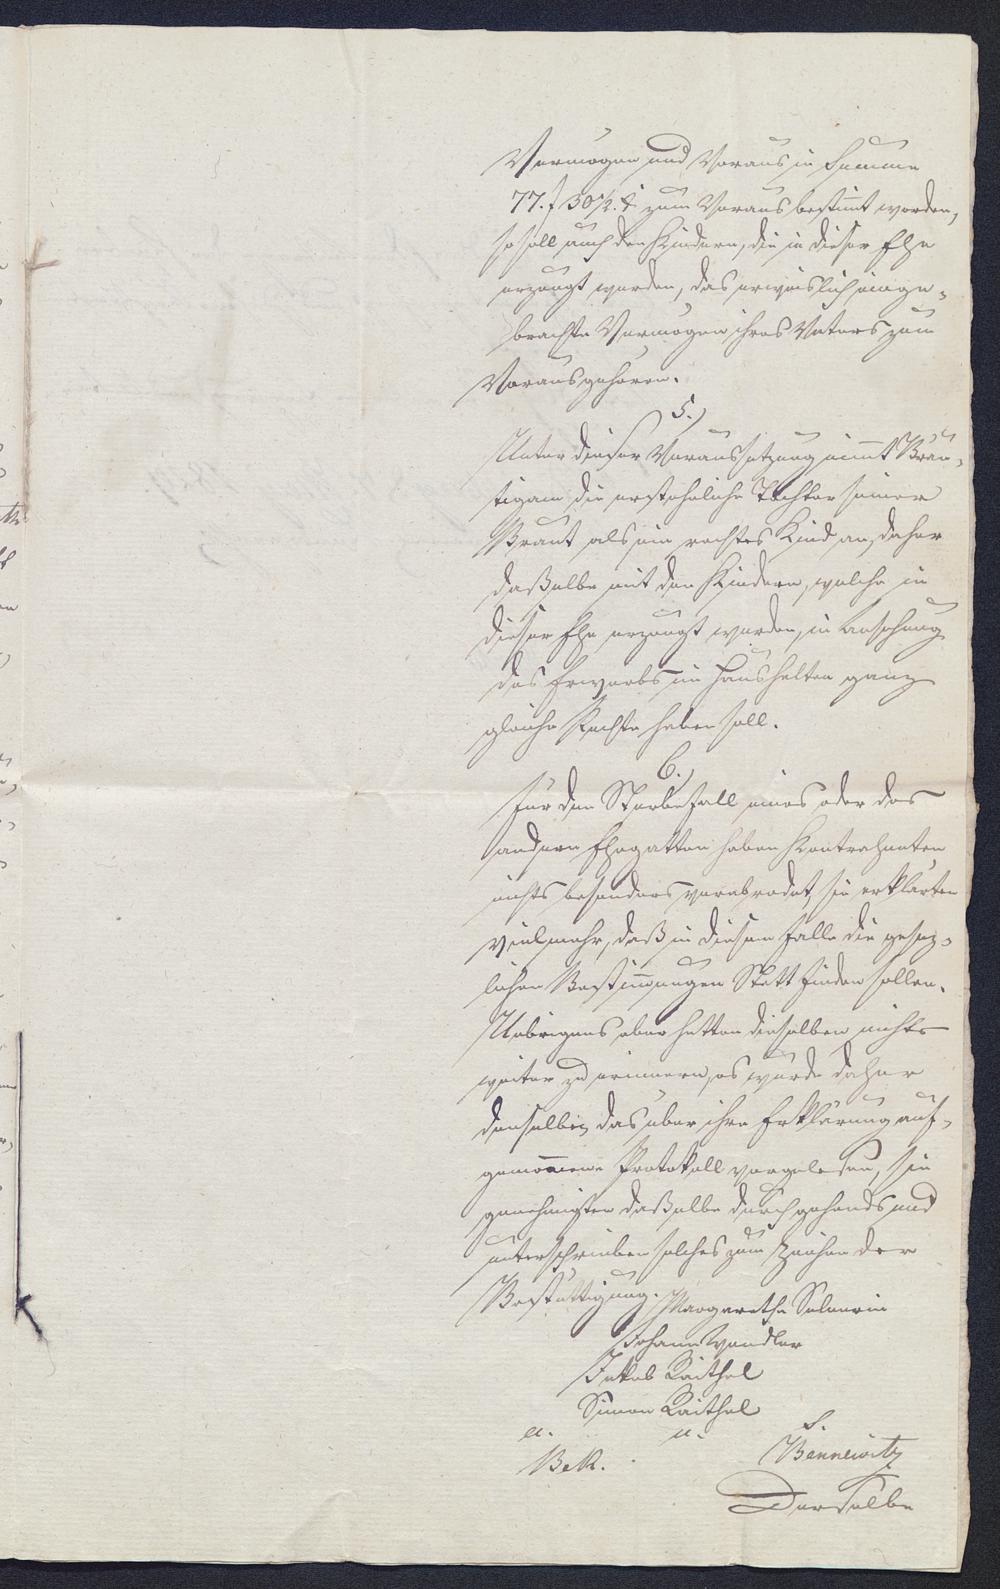 Vermögen und Voraus in Summa
77. f 50½. x zum Voraus bestimt worden,
so soll auch den Kindern, die in dieser Ehe
erzeugt werden, das erweislich einge-
brachte Vermögen ihres Vaters zum
Voraus gehören.
5.)
Unter dieser Voraussetzung nimt Bräu-
tigam die erstehliche Tochter seiner
Braut als ein rechtes Kind an, daher
daßelbe mit den Kindern, welche in
dieser Ehe erzeugt werden, in Ansehung
des Erwerbs im Haushalten ganz
gleiche Rechte haben soll.
6.)
Für den Sterbefall eines oder des
andern Ehegatten haben Kontrahenten
nichts besonders verabredet, sie erklärten
vielmehr, daß in diesem Falle die gesez-
lichen Bestimungen Statt finden sollen.
Uebrigens aber hatten dieselben nichts
weiter zu erinnern, es wurde daher
denselben das über ihre Erklärung auf-
genomene Protokoll vorgelesen, sie
genehmigten daßelbe durchgehends und
unterschrieben solches zum Zeichen der
Bestättigung. Margaretha
Johann Wendler
Jakob Raithel
Simon Raithel
a. u. s.
Bek. Bennewitz
Derselbe